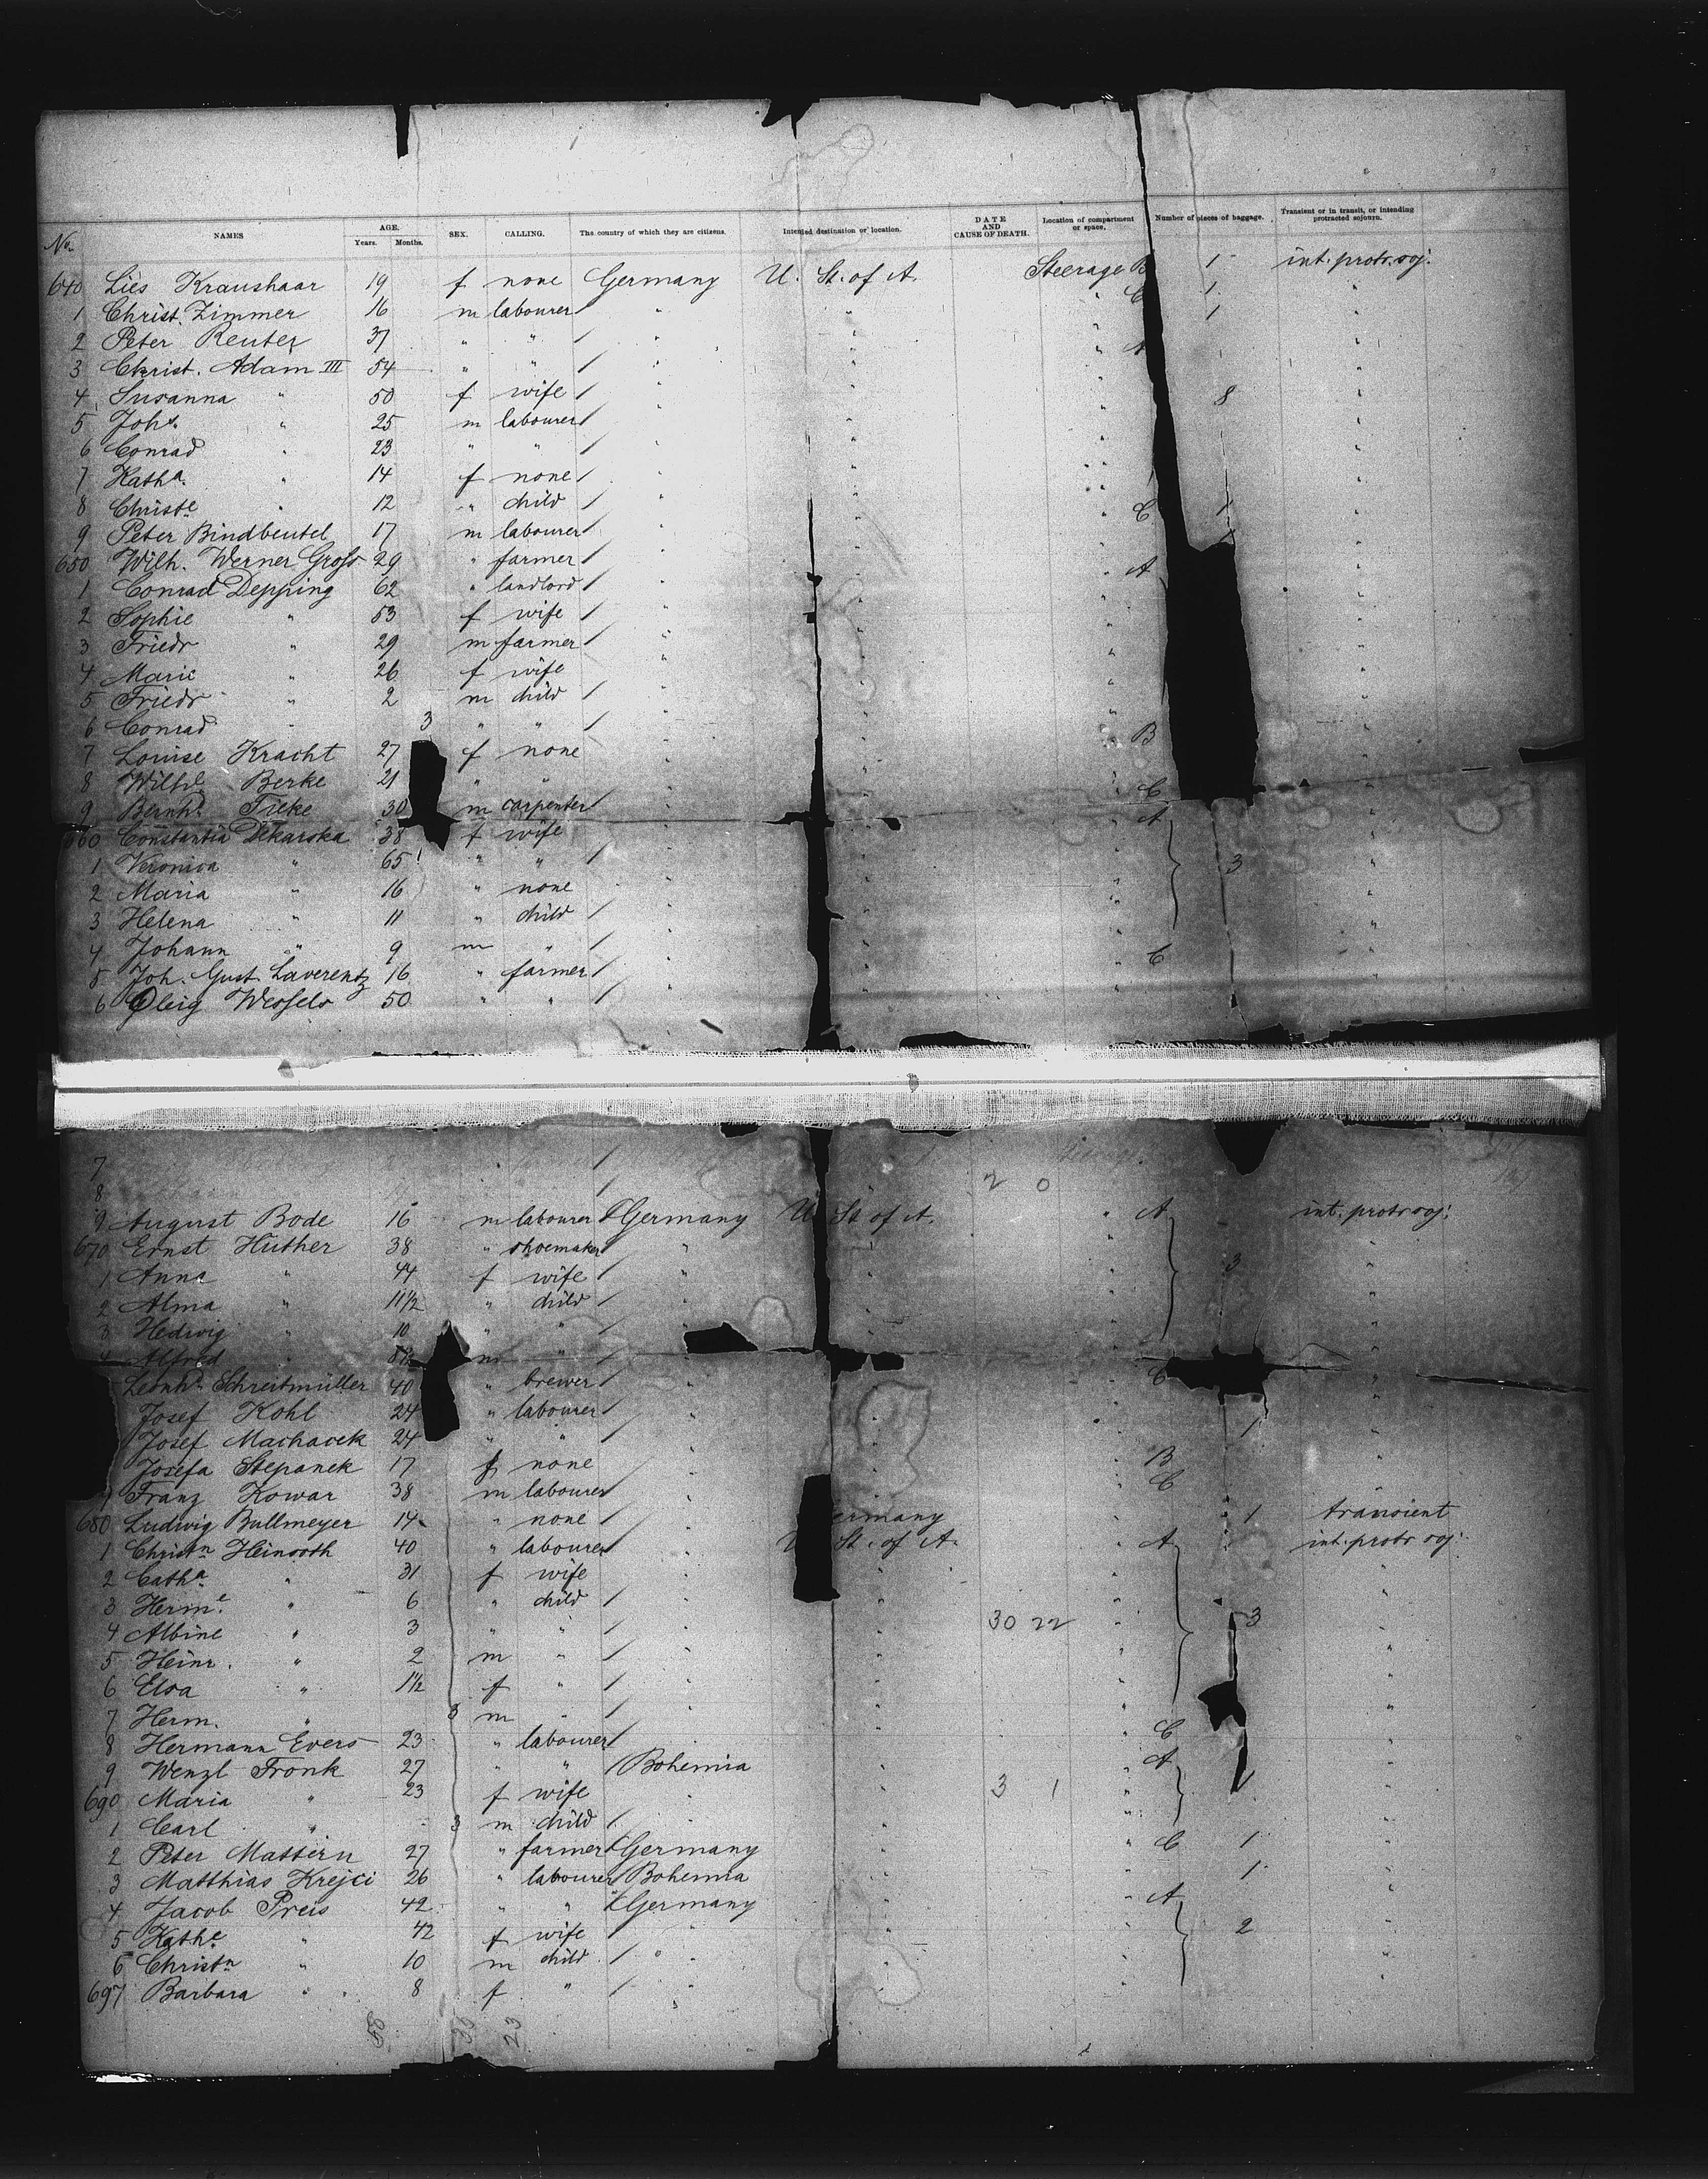 No. NAMES AGE. Years. Months. SEX. CALLING. The country of which they are citizens. Intended destination or location. DATE AND CAUSE OF DEATH. Location of compartment or space. Number of pieces of baggage. Transient or in transit, or intending protracted sojourn.
640 Lies Kraushaar 19 f none Germany U. St. of A. Steerage B 1 int. protr. soj.
1 Christ. Zimmer 16 m labourer " " " C 1 "
2 Peter Reuter 37 " " " " " 1 "
3 Christ. Adam III 54 " " " " " A "
4 Susanna " 50 f wife " " " "
5 Johs. " 25 m labourer " " " 8 "
6 Conrad " 23 " " " " " "
7 Katha. " 14 f none " " " "
8 Christe " 12 " child " " " "
9 Peter Bindbeutel 17 m labourer " " " C 1 "
650 Wilh. Werner Gross 29 " farmer " " " "
1 Conrad Depping 62 " landlord " " " A "
2 Sophie " 53 f wife " " " "
3 Friedr " 29 m farmer " " " "
4 Marie " 26 f wife " " " "
5 Friedr " 2 m child " " " "
6 Conrad " 3 " " " " " "
7 Louise Kracht 27 f none " " " B "
8 Berke 21 " " " " " "
9 Bernhd. Tieke 30 m carpenter " " " C "
660 Constantia 38 f wife " " " A "
1 Veronica " 65 " " " " " 3 "
2 Maria " 16 " none " " " "
3 Helena " 11 " child " " " "
4 Johann " 9 m " " " " "
5 Joh. Gust. Laverentz 16 " farmer " " " C "
6 Wessels 50 " " " " " "
7
8 2 0
9 August Bode 16 m labourer Germany U. St of A. " A int. protr soj.
670 Ernst Huther 38 " shoemaker " " " "
1 Anna " 44 f wife " " " 3 "
2 Alma " 11 1/2 " child " " " "
3 Hedwig " 10 " " " " " "
4 Alfred " m " " " " "
Leonhd. Schreitmüller 40 " brewer " " " C "
Josef Kohl 24 " labourer " " " "
Josef Machacek 24 " " " " " 1 "
Josefa Stepanek 17 f none " " " B "
9 Franz Kowar 38 m labourer " " " C "
680 Ludwig Bullmeyer 14 " none " ermany " 1 transient
1 Christn Heinroth 40 " labourer " U. St. of A. " A int. protr soj.
2 Catha " 31 f wife " " " "
3 Herme. " 6 " child " " " "
4 Albine " 3 " " " " 30 22 " 3 "
5 Heinr. " 2 m " " " " "
6 Elsa " 1 1/2 f " " " " "
7 Herm. " 3 m " " " " "
8 Hermann Evers 23 " labourer " " " C "
9 Wenzl Fronk 27 " " Bohemia " " A "
690 Maria " 23 f wife " " 3 1 " 1 "
1 Carl " 3 m child " " " "
2 Peter Mattern 27 " farmer Germany " " C 1 "
3 Matthias Krejci 26 " labourer Bohemia " " 1 "
4 Jacob Preis 42 " " Germany " " A "
5 Kathe " 42 f wife " " " 2 "
6 Christn " 10 m child " " " "
697 Barbara " 8 f " " " " "
58 35 23